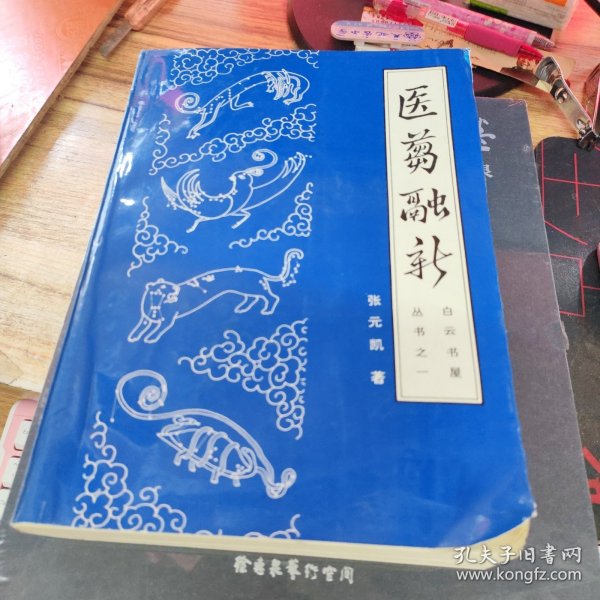 医蒭融新
白云书屋
丛书之一
张元凯 著
孔夫子旧书网
www.kongfz.com